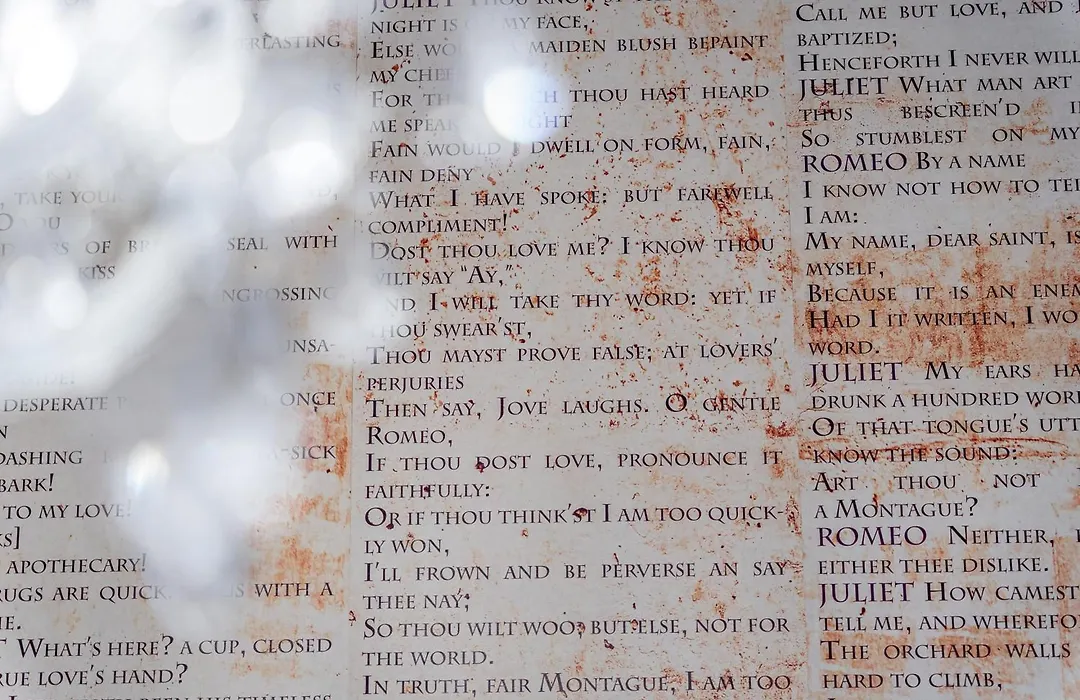 ERLASTING
, TAKE YOUR
O YOU
OF SEAL WITH
KISS
NGROSSING
UNSA-
DESPERATE ONCE
N
DASHING -SICK
BARK!
TO MY LOVE!
KS]
APOTHECARY!
RUGS ARE QUICK. WITH A
T WHAT'S HERE? A CUP, CLOSED
RUE LOVE'S HAND?
JULIET THOU
NIGHT IS MY FACE,
ELSE MAIDEN BLUSH BEPAINT
MY
FOR THOU HAST HEARD
ME
FAIN WOULD I DWELL ON FORM, FAIN,
FAIN DENY
WHAT I HAVE SPOKE: BUT FAREWELL
COMPLIMENT!
DOST THOU LOVE ME? I KNOW THOU
WILT SAY "AY,"
AND I WILL TAKE THY WORD: YET IF
THOU SWEAR'ST,
THOU MAYST PROVE FALSE; AT LOVERS'
PERJURIES
THEN SAY, JOVE LAUGHS. O GENTLE
ROMEO,
IF THOU DOST LOVE, PRONOUNCE IT
FAITHFULLY:
OR IF THOU THINK'ST I AM TOO QUICK-
LY WON,
I'LL FROWN AND BE PERVERSE AN SAY
THEE NAY;
SO THOU WILT WOO; BUT ELSE, NOT FOR
THE WORLD.
IN TRUTH, FAIR MONTAGUE, I AM TOO
CALL ME BUT LOVE, AND I
BAPTIZED;
HENCEFORTH I NEVER WILL
JULIET WHAT MAN ART
THUS BESCREEN'D I
SO STUMBLEST ON MY
ROMEO BY A NAME
I KNOW NOT HOW TO TEL
I AM:
MY NAME, DEAR SAINT, IS
MYSELF,
BECAUSE IT IS AN ENEM
HAD I IT WRITTEN, I WO
WORD.
JULIET MY EARS HA
DRUNK A HUNDRED WOR
OF THAT TONGUE'S UTT
KNOW THE SOUND:
ART THOU NOT
A MONTAGUE?
ROMEO NEITHER,
EITHER THEE DISLIKE.
JULIET HOW CAMEST
TELL ME, AND WHEREFO
THE ORCHARD WALLS
HARD TO CLIMB,